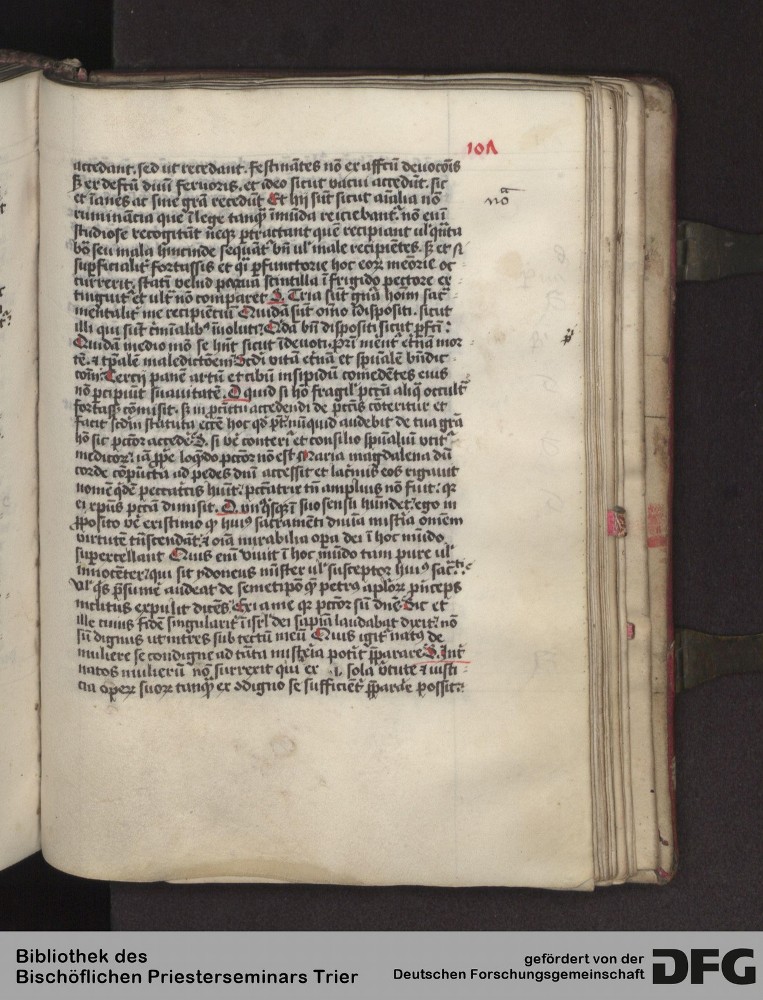 101
accedant. sed ut recedant. festinātes nō ex affcū deuocōis
sʒ ex defcū diuī feruoris. et ideo sicut vacui accedūt. sic
et īanes ac sine grā recedūt Et hij sūt sicut aīalia nō
nō
ruminācia que ī lege tanqᷓ īmūda reiciebantᷣ. nō enī
studiose recogitāt neqʒ ꝑtractant que recipiant ul qͥta
bōa seu mala hincinde sequātᷣ bn̄ ul male recipiētes. sʒ et si
suꝑficialitᷣ fortassis et qͣi ꝑfunctorie hoc eoꝝ meōrie oc
currerit. statī velud paruula scintilla ī frigido pectore ex
tinguitᷣ et ultᷣ nō comparet D. Tria sūt gn̄a hoim sacᷓ
mentalitᷣ me recipienciū Quidā sūt oīno īdispositi. sicut
illi qui sunt cͥminalibꝫ īuoluti. Qdā bn̄ dispositi sicut ꝑfcī.
Quidā medio mō se hn̄t sicut īdeuoti. Pri merētᷣ etnā mor
tē. ⁊ tꝑalē maledictōem Scdi vitā etnā et spūalē bn̄dic
cōm. Tercij panē artū et cibū insipidū comedētes eius
nō ꝑcipiūt suauitatē. D quid si hō fragilᷣ pctrū aliqͦ occultᷣ
fortassᷣ cōmisit. sʒ in ꝓcītu accedendi de pctis cōteritur et
facit scdm statuta eccͤē hoc qd pt̄. nūquid audebit de tua grā
hō sic pctōr accedē D. si ve cōteritᷣ et consilio spūaliū utitᷣ
medicoꝝ. iā ꝓpe loqͤdo pctōr nō est Maria magdalena dū
corde cōpūcta ad pedes dn̄i accessit et lacrīis eos rigauit
nomē qͥdē peccatricis huit. pctātrix tn̄ amplius nō fuit. qꝛ
ei xpūs pctā dimisit. D. vnꝰqͥsqʒ ī suo sensu hūndet. ego in
ꝓposito ve existimo qꝫ huiꝰ sacramēti diuīa mist̄ia omēm
virtutem trn̄scendāt. ⁊ oīa mirabilia oꝑa dei ī hoc mūdo
superexcellant Quis enī viuit ī hoc mūdo tam pure ul
innocēter. qui sit ydoneus mīster ul susceptor huiꝰ sacᷓti
Vl qͥs ꝑsūme audeat de semetipo qͦ petrꝰ aploꝝ pͥnceps
inclitus expulit dicēs. Exi a me qꝛ pctōr sū dn̄e Sic et
ille cuius fidē singularitᷣ ī isrl dei sapīa laudabat dixit. nō
sū dignus ut intres sub tectū meū Quis igitᷣ natꝰ de
muliere se condigne ad tāta mist̄eria poīt p̄parare D. Intᷣ
natos mulierū nō surrexit qui ex .i. sola v̄tute ⁊ iusti
cia opeꝝ suoꝝ tanqᷓ ex ɔdigno se sufficiētᷣ p̄parare possit.
Bibliothek des
Bischöflichen Priesterseminars Trier
gefördert von der
Deutschen Forschungsgemeinschaft
DFG